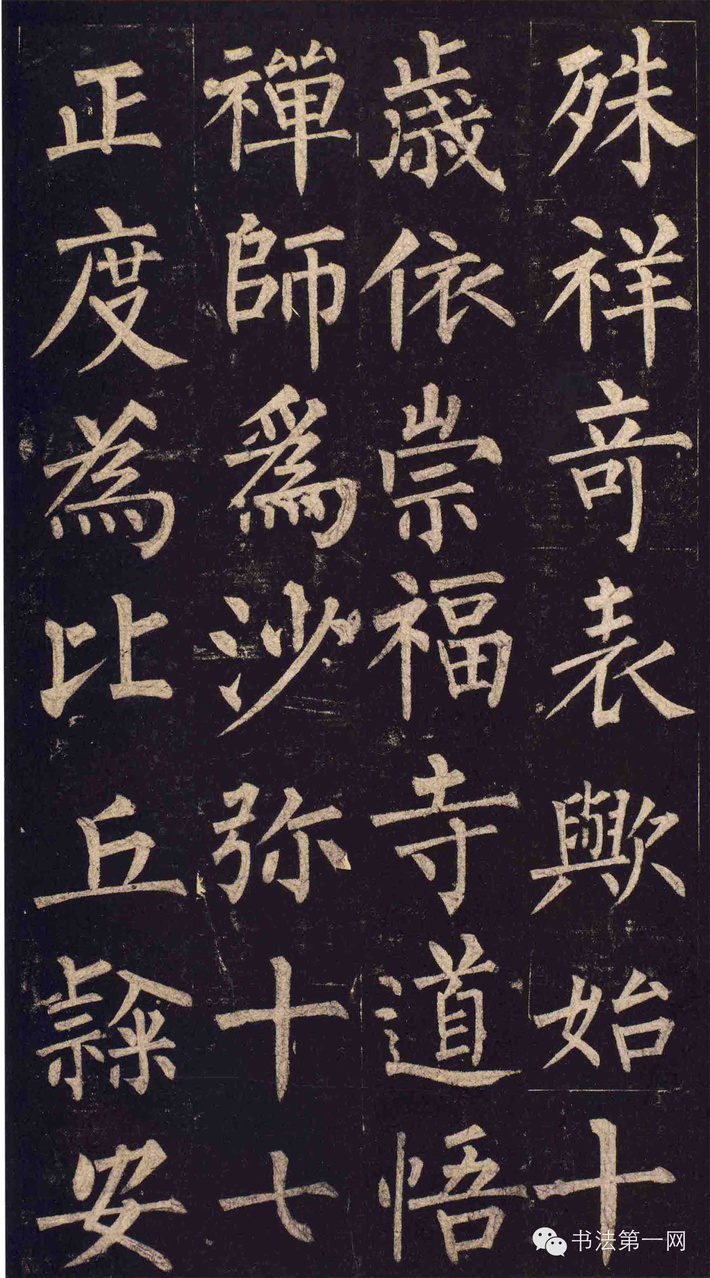 殊祥竒表歟始十
歳依崇福寺道悟
禪師爲沙弥十七
正度為比丘隸安
书法第一网